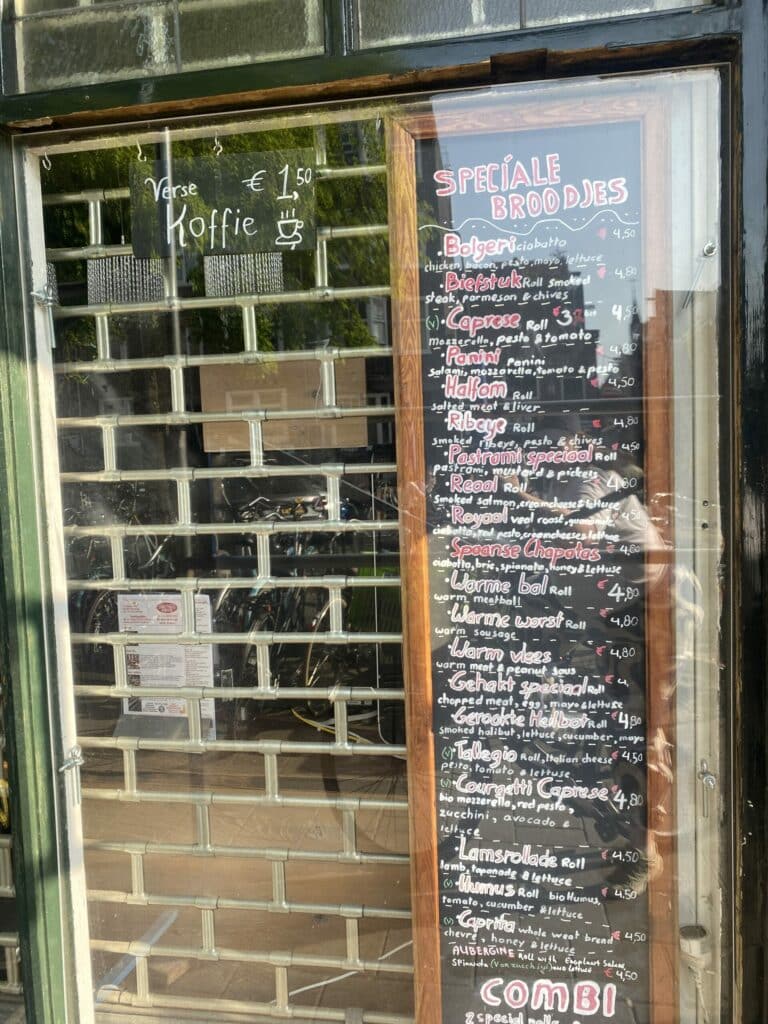 Verse € 1,50
Koffie
SPECÍALE
BROODJES
Bolgeri ciabatta € 4,50
chicken, bacon, pesto, mayo, lettuce
Biefstuk Roll Smoked € 4,80
steak, parmesan & chives
(v) Caprese Roll 4,50
mozzarella, pesto & tomato
Panini Panini € 4,80
salami, mozzarella, tomato & pesto
Halfom Roll € 4,50
salted meat & liver
Ribeye Roll € 4,80
smoked ribeye, pesto & chives
Pastrami speciaal Roll € 4,50
pastrami, mustard & pickels
Reaal Roll 4,80
Smoked salmon, creamcheese & lettuce
Royaal veal roast, € 4,50
ciabatta, red pesto, creamcheese & lettuce
Spaanse Chapatas € 4,80
ciabatta, brie, spianata, honey & lettuse
Warme bal Roll € 4,80
warm meatball
Warme worst Roll € 4,80
warm sausage
Warm vlees € 4,80
warm meat & peanut saus
Gehakt speciaal Roll €
chopped meat, egg, mayo & lettuse
Gerookte Heilbot Roll 4,80
smoked halibut, lettuce, cucumber, mayo
(v) Tallegio Roll, Italian cheese € 4,50
pesto, tomato & lettuse
(v) Courgetti Caprese € 4,80
bio mozzarella, red pesto,
zucchini, avocado &
lettuce
Lamsrollade Roll € 4,50
lamb, tapanade & lettuce
(v) Humus Roll bio Humus, € 4,50
tomato, cucumber & lettuce
(v) Caprita whole weat bread € 4,50
chevre, honey & lettuce
AUBERGINE Roll with Eggplant Salade
€ 4,50
COMBI
2 special rolls